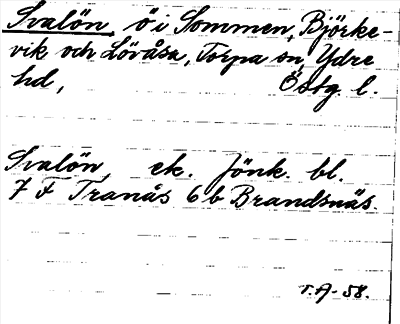 Svalön, ö i Sommen, Björke-
vik och Lövåsa, Torpa sn, Ydre
hd, Östg. l.
Svalön, ek. Jönk. bl.
7 F Tranås 6 b Brandsnäs.
T.A. 58.